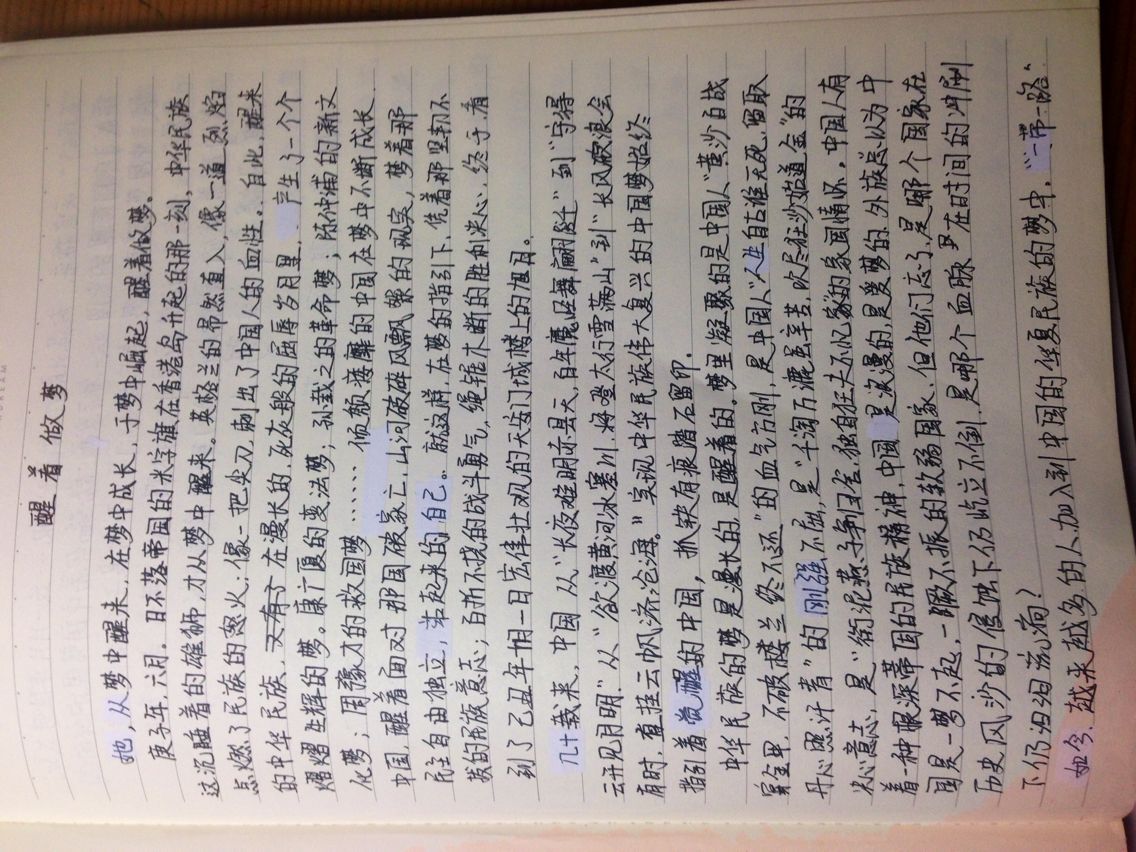 醒着做梦
她，从梦中醒来，在梦中成长，于梦中崛起，醒着做梦。
庚子年六月，日不落帝国的米字旗在香港岛升起的那一刻，中华民族
这沉睡着的雄狮，才从梦中醒来。英格兰的昂然直入，像一道烈焰
点燃了民族的怒火；像一把尖刀，刺出了中国人的血性。自此，醒来
的中华民族，在漫长的，死灰般的屈辱岁月里，产生了一个个
熠熠生辉的梦。康广厦的变法梦；孙载之的革命梦；陈仲甫的新文
化梦；周豫才的救国梦……倾颓萎靡的中国在梦中不断成长
中国，醒着面对那国破家亡，山河破碎风飘絮的现实，梦着那
民主自由独立，站起来的自己。就这样，在梦的指引下，凭着那坚韧不
拔的民族意志；百折不挠的战斗勇气，绳锯木断的胜利决心，终于看
到了己丑年相一日宏伟壮观的天安门城楼上的旭日。
几十载来，中国从“长夜难明赤县天，百年魔怪舞翩跹”到“守得
云开见月明”从“欲渡黄河冰塞川，将登太行雪满山”到“长风破浪会
有时，直挂云帆济沧海。”实现中华民族伟大复兴的中国梦始终
指引着觉醒的中国，抓铁有痕踏石留印。
中华民族的梦是漫长的，是醒着的，梦里凝聚的是中国人“黄沙百战
穿金甲，不破楼兰终不还”的血气方刚，是中国人“人生自古谁无死，留取
丹心照汗青”的刚强不屈，是“千淘万漉虽辛苦，吹尽狂沙始道金”的
决心意志，是“衔泥燕子争归舍，独自狂夫不忆家”的家国情怀。中国人有
着一种根深蒂固的民族精神，中国是浪漫的，是爱梦的，外族误以为中
国是一梦不起，一蹶不振的软弱国家，但他们忘了，是哪个国家在
历史风沙的侵蚀下仍屹立不倒，是哪个血脉在时间的冲刷
下仍汩汩流淌？
如今，越来越多的人加入到中国的华夏民族的梦中，“一带一路”